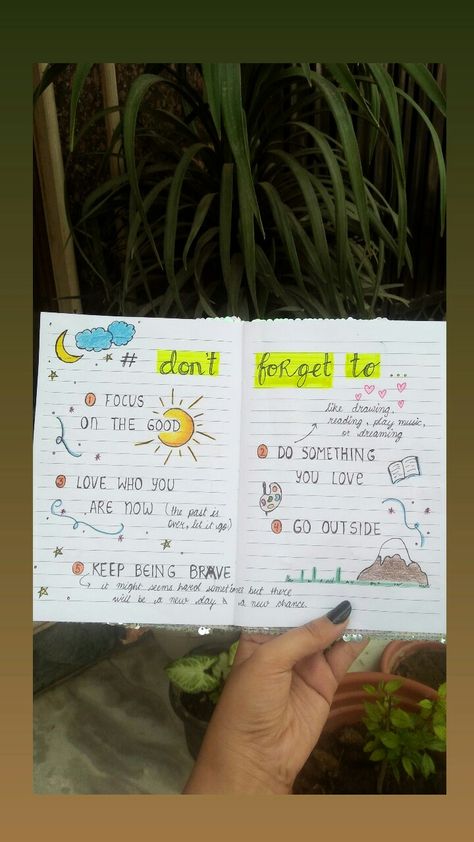 # don't forget to ...
1 FOCUS
ON THE GOOD
like drawing,
reading, play music,
or dreaming
2 DO SOMETHING
YOU LOVE
3 LOVE WHO YOU
ARE NOW (the past is
over, let it go)
4 GO OUTSIDE
5 KEEP BEING BRAVE
it might seems hard sometimes but there
will be a new day & a new chance.